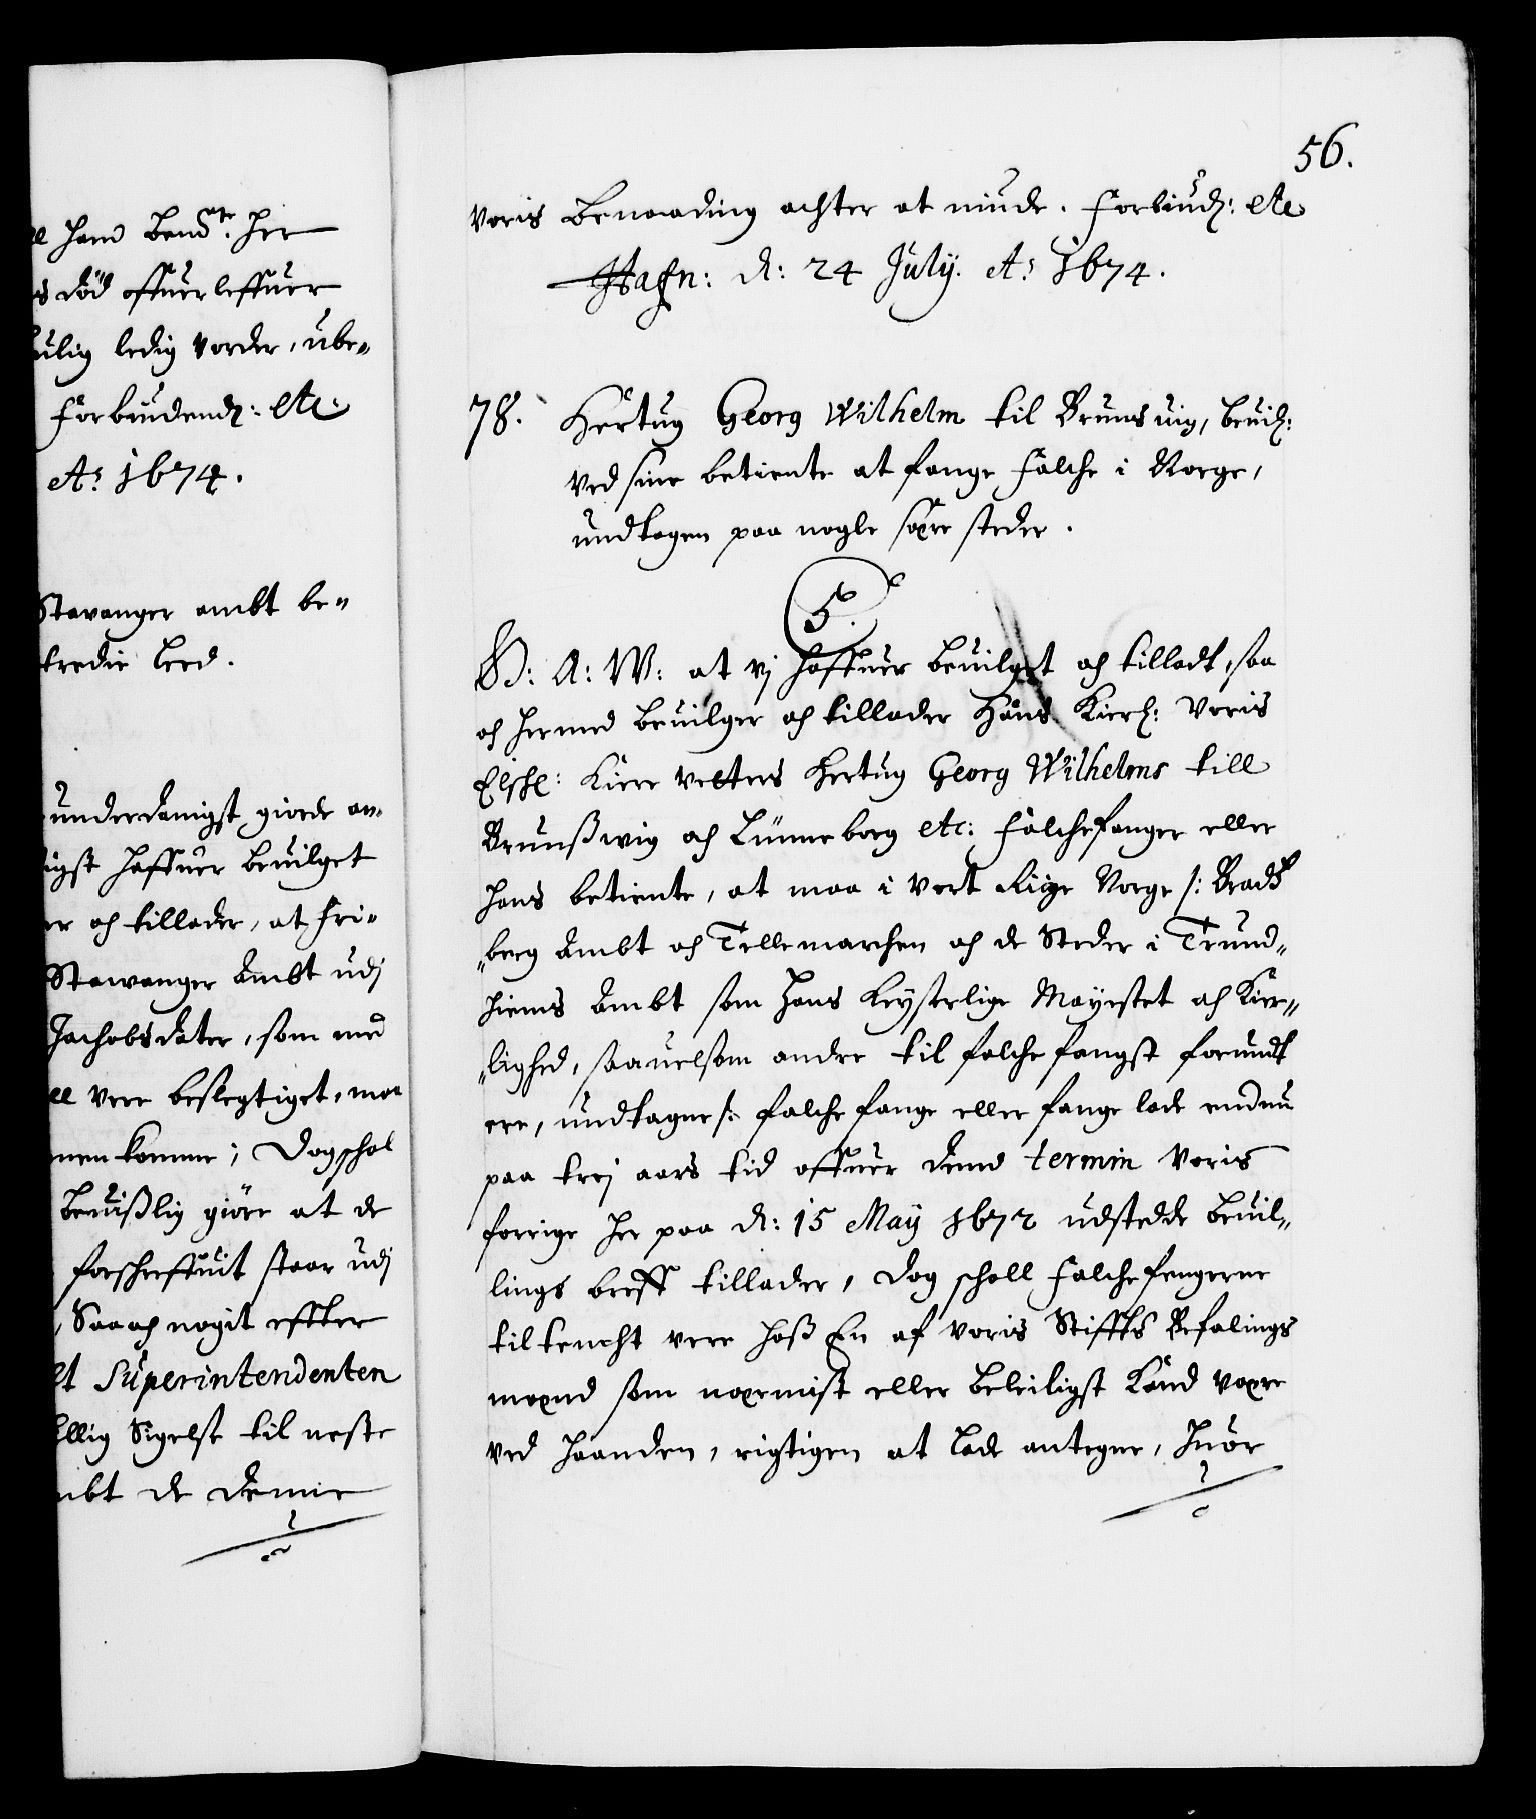 56.
ll hand bem.te her
s død offuerleffuer
uelig ledig vorder, ube-
Forbiudend: etc:
Ao 1674.
Stavanger ambt be-
tredie leed.
underdanigst giorde an-
igst haffuer beuilget
er och tillader, at Fri-
Stawanger Ambt udj
Jachobsdater, som med
ll vere beslegtiget, maa
men komme; Dog schal
beuißlig giøre at de
forschreffuit staar udj
, Saa och nogit effter
lt Superintendenten
llig Sigelse til neste
mbt de Demie
voris benaading achter at niude. Forbiud: etc
Hafn: d: 24 July. Ao 1674.
78. Hertug Georg Wilhelm til Brunsuig, beuil:
ved sine betiente at fange Falche i Norge,
undtagen paa nogle szere steder.
5.
G: A: W: at vj haffuer beuilget och tilladt, saa
och hermed beuilger och tillader Hans Kierl: Voris
Elschl: Kiere Vetters Hertug Georg Wilhelms till
Brunßwig och Lünneborg etc: Falchefanger eller
hans betiente, at maa i vort Rige Norge /: Bradtz
berg Ambt och Tellemarchen och de Steder i Trund-
hiems Ambt som Hans Keyserlige Mayestet och Kier-
lighed, saauelsom andre til falchefangst forundt
ere, undtagne :/ falche fange eller fange lade endnu
paa trej aars tid offuer dend termin Voris
forrige her paa d: 15 May 1672 udstedde beuil-
lings breff tillader, dog schall Falchefengerne
tiltencht vere hoß En af voris Stiffts Befalings
mænd som nærmist eller beleiligst Kand være
ved haanden, rigtigen at lade antegne, huor